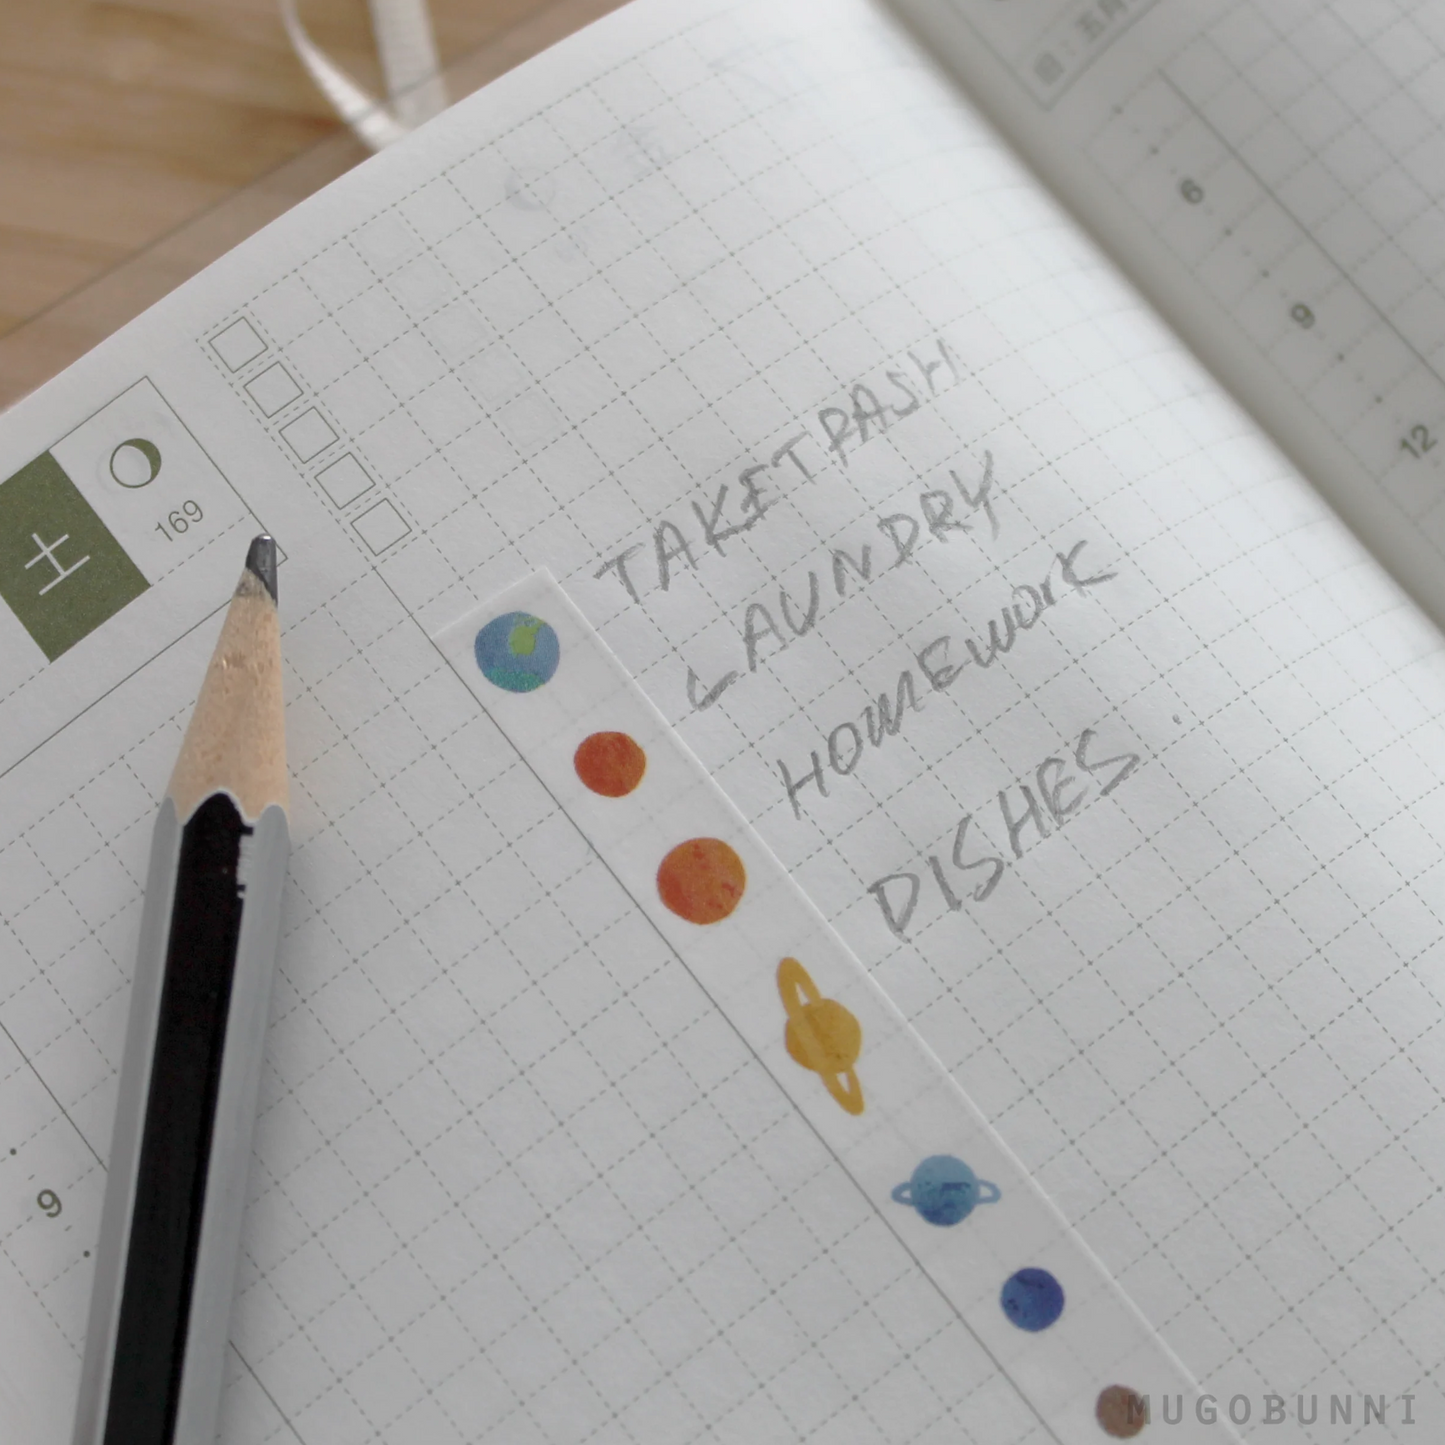 土
169
TAKETRASH
LAUNDRY
HOMEWORK
DISHES.
9
6
9
12
MUGOBUNNI